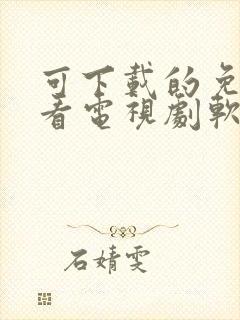 可下載的免
看電視劇軟
石婧雯